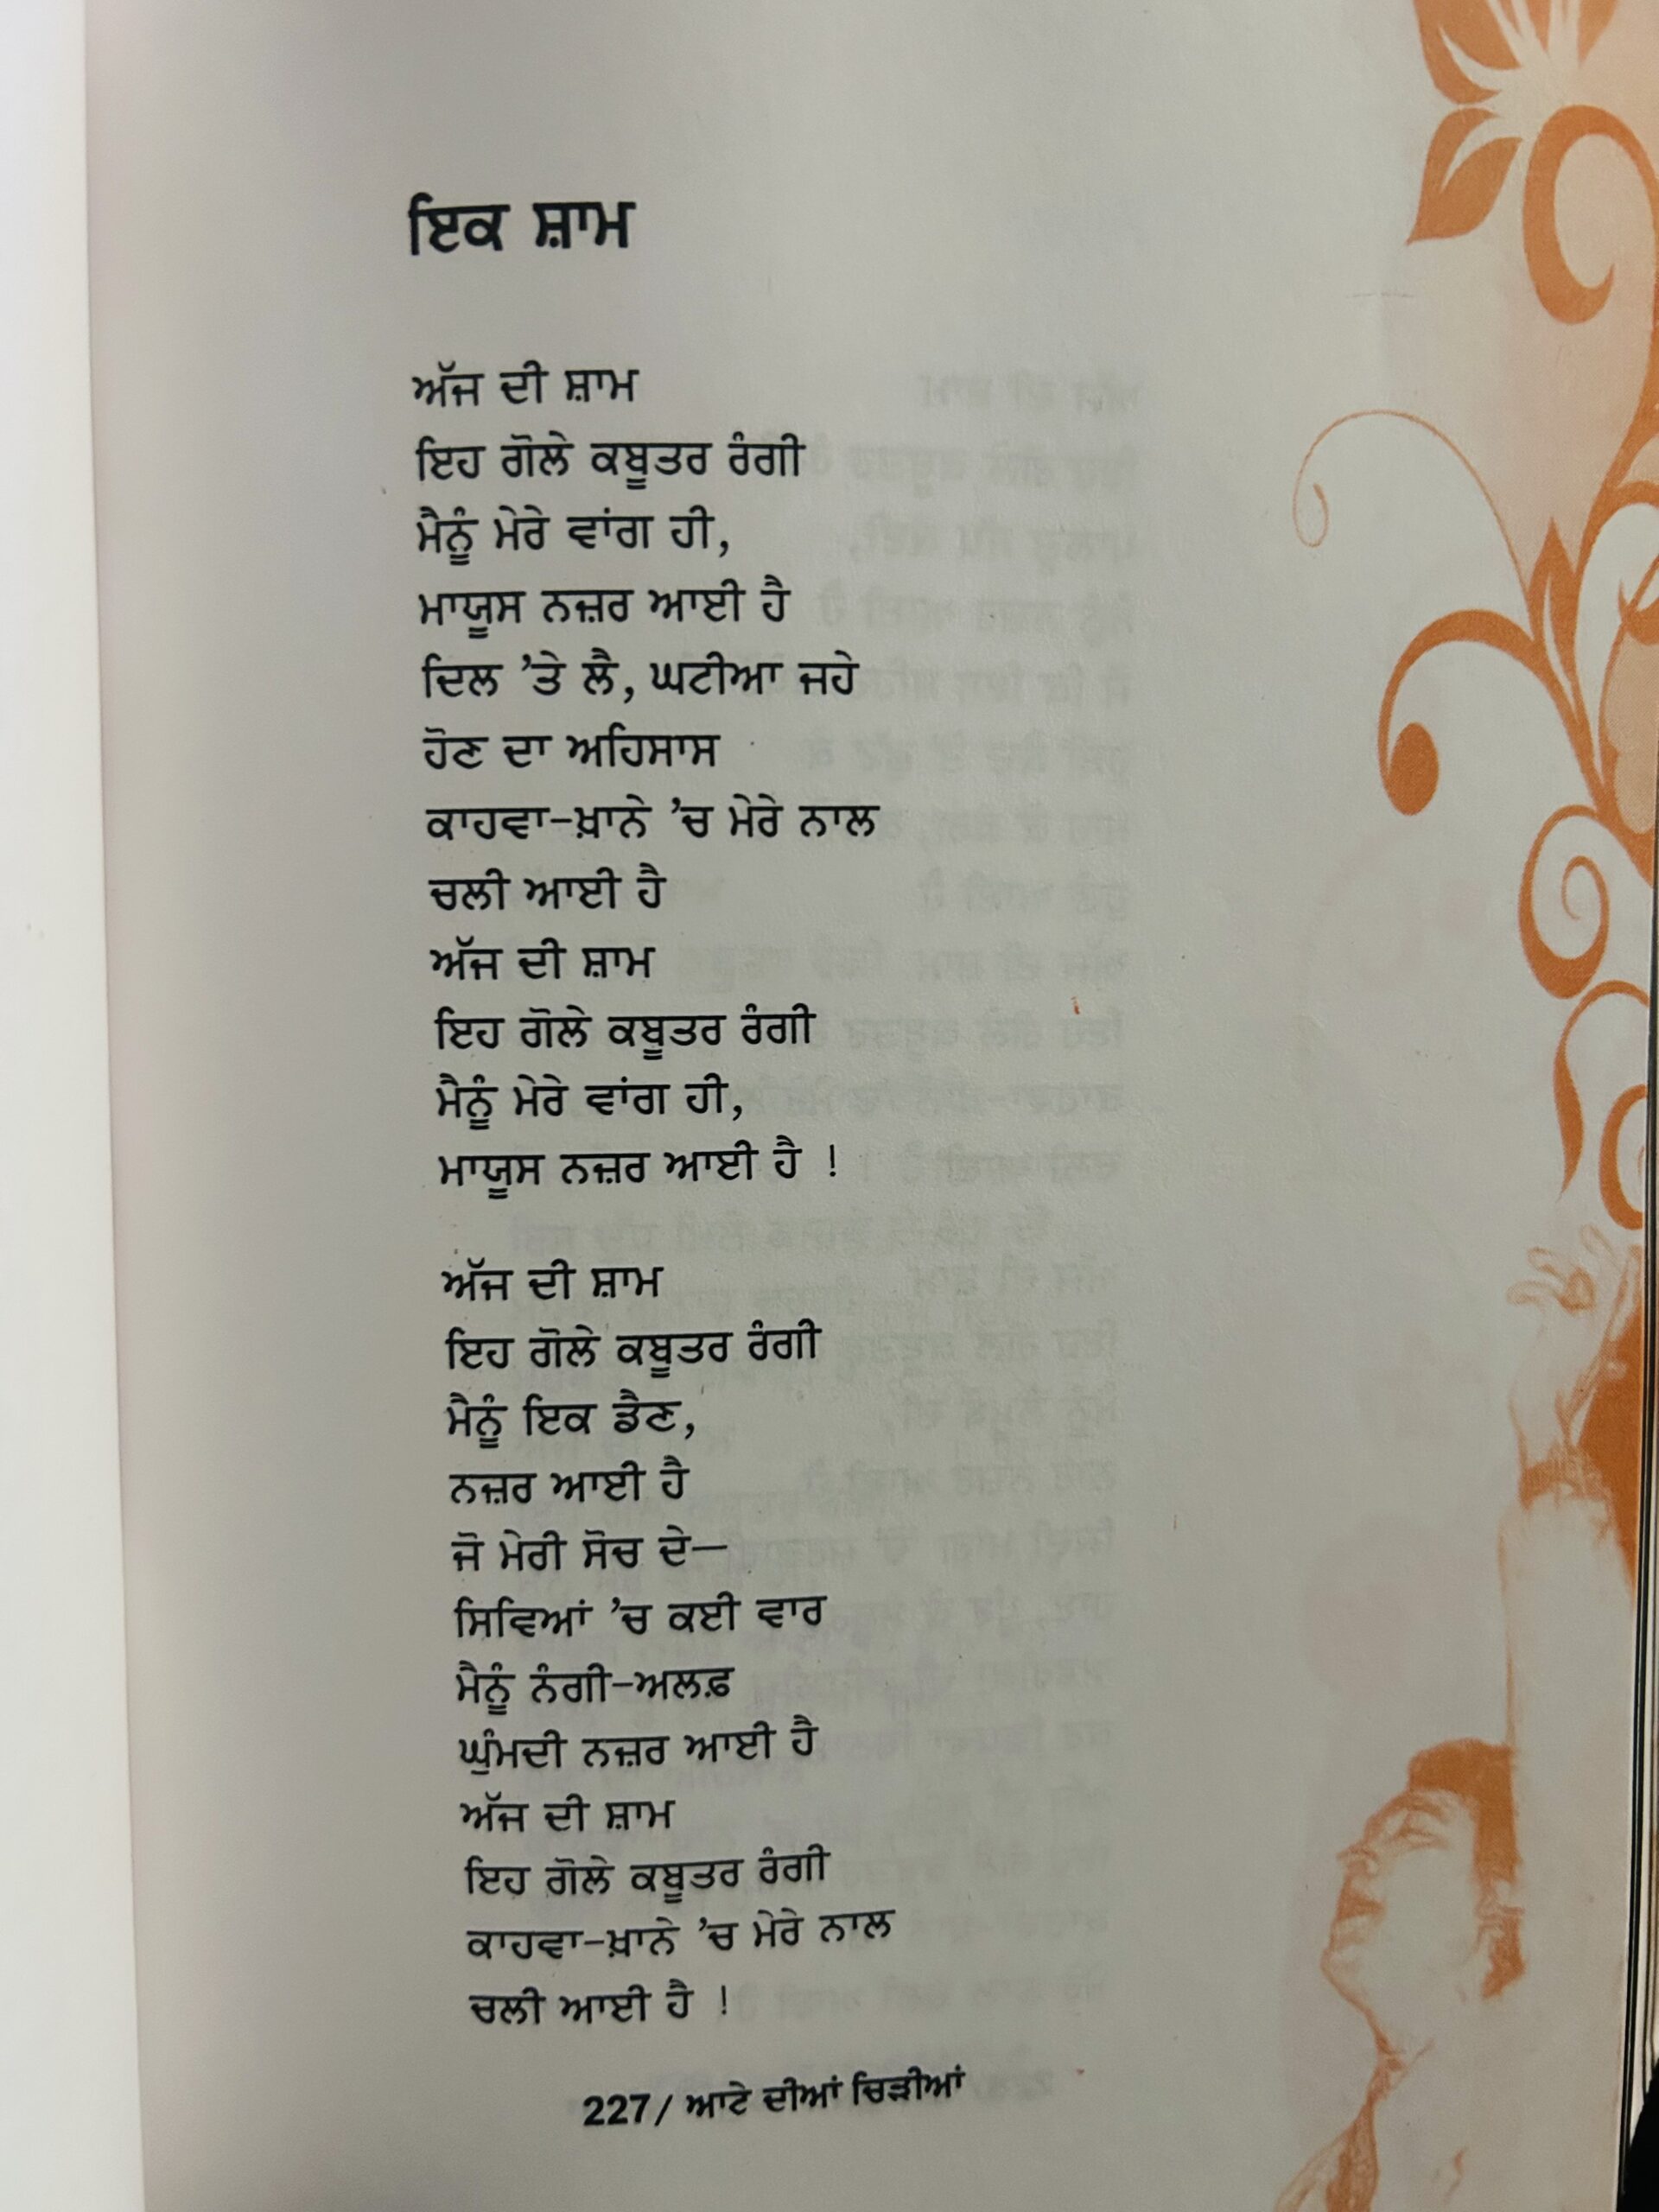 ਇਕ ਸ਼ਾਮ
ਅੱਜ ਦੀ ਸ਼ਾਮ
ਇਹ ਗੋਲੇ ਕਬੂਤਰ ਰੰਗੀ
ਮੈਨੂੰ ਮੇਰੇ ਵਾਂਗ ਹੀ,
ਮਾਯੂਸ ਨਜ਼ਰ ਆਈ ਹੈ
ਦਿਲ 'ਤੇ ਲੈ, ਘਟੀਆ ਜਹੇ
ਹੋਣ ਦਾ ਅਹਿਸਾਸ
ਕਾਹਵਾ-ਖ਼ਾਨੇ 'ਚ ਮੇਰੇ ਨਾਲ
ਚਲੀ ਆਈ ਹੈ
ਅੱਜ ਦੀ ਸ਼ਾਮ
ਇਹ ਗੋਲੇ ਕਬੂਤਰ ਰੰਗੀ
ਮੈਨੂੰ ਮੇਰੇ ਵਾਂਗ ਹੀ,
ਮਾਯੂਸ ਨਜ਼ਰ ਆਈ ਹੈ !
ਅੱਜ ਦੀ ਸ਼ਾਮ
ਇਹ ਗੋਲੇ ਕਬੂਤਰ ਰੰਗੀ
ਮੈਨੂੰ ਇਕ ਡੈਣ,
ਨਜ਼ਰ ਆਈ ਹੈ
ਜੋ ਮੇਰੀ ਸੋਚ ਦੇ—
ਸਿਵਿਆਂ 'ਚ ਕਈ ਵਾਰ
ਮੈਨੂੰ ਨੰਗੀ-ਅਲਫ਼
ਘੁੰਮਦੀ ਨਜ਼ਰ ਆਈ ਹੈ
ਅੱਜ ਦੀ ਸ਼ਾਮ
ਇਹ ਗੋਲੇ ਕਬੂਤਰ ਰੰਗੀ
ਕਾਹਵਾ-ਖ਼ਾਨੇ 'ਚ ਮੇਰੇ ਨਾਲ
ਚਲੀ ਆਈ ਹੈ !
227/ ਆਟੇ ਦੀਆਂ ਚਿੜੀਆਂ